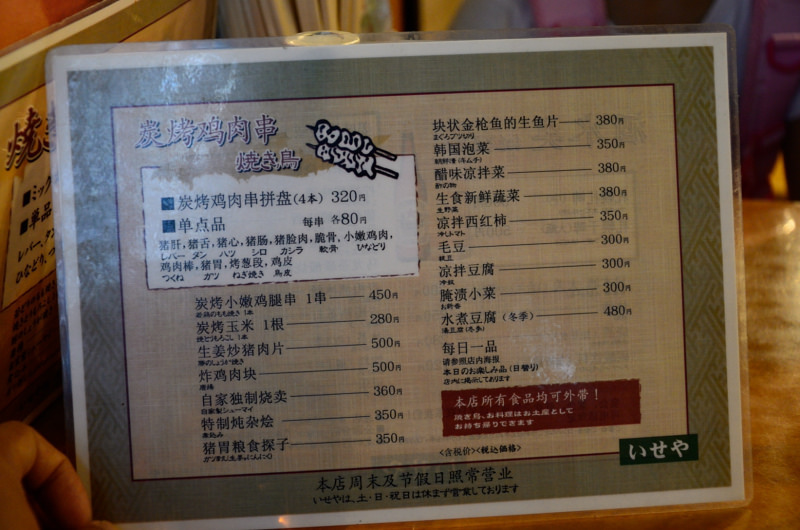 炭烤鸡肉串
焼き鳥
■炭烤鸡肉串拼盘(4本) 320円
■单点品 每串 各80円
猪肝,猪舌,猪心,猪肠,猪脸肉,脆骨,小嫩鸡肉,
レバー タン ハツ シロ カシラ 軟骨 ひなどり
鸡肉棒,猪胃,烤葱段,鸡皮
つくね ガツ ねぎ焼き 鳥皮
炭烤小嫩鸡腿串 1串 450円
若鶏のもも焼き 1本
炭烤玉米 1根 280円
焼とうもろこし 1本
生姜炒猪肉片 500円
豚のしょうが焼き
炸鸡肉块 500円
唐揚
自家独制烧卖 360円
自家製シューマイ
特制炖杂烩 350円
煮込み
猪胃粮食探子 350円
块状金枪鱼的生鱼片 380円
まぐろブツ切り
韩国泡菜 350円
朝鮮漬(キムチ)
醋味凉拌菜 380円
酢の物
生食新鲜蔬菜 380円
生野菜
凉拌西红柿 350円
冷しトマト
毛豆 300円
枝豆
凉拌豆腐 300円
冷奴
腌渍小菜 300円
お新香
水煮豆腐(冬季) 480円
湯豆腐(冬季)
每日一品
请参照店内海报
本日のお楽しみ品(日替り)
店内に掲示しております
本店所有食品均可外带!
焼き鳥、お料理はお土産として
お持ち帰りできます
<含税价><税込価格>
いせや
本店周末及节假日照常营业
いせやは、土・日・祝日は休まず営業しております
焼き
■ミッ
■単品
レバー、タン
ひなどり、つ